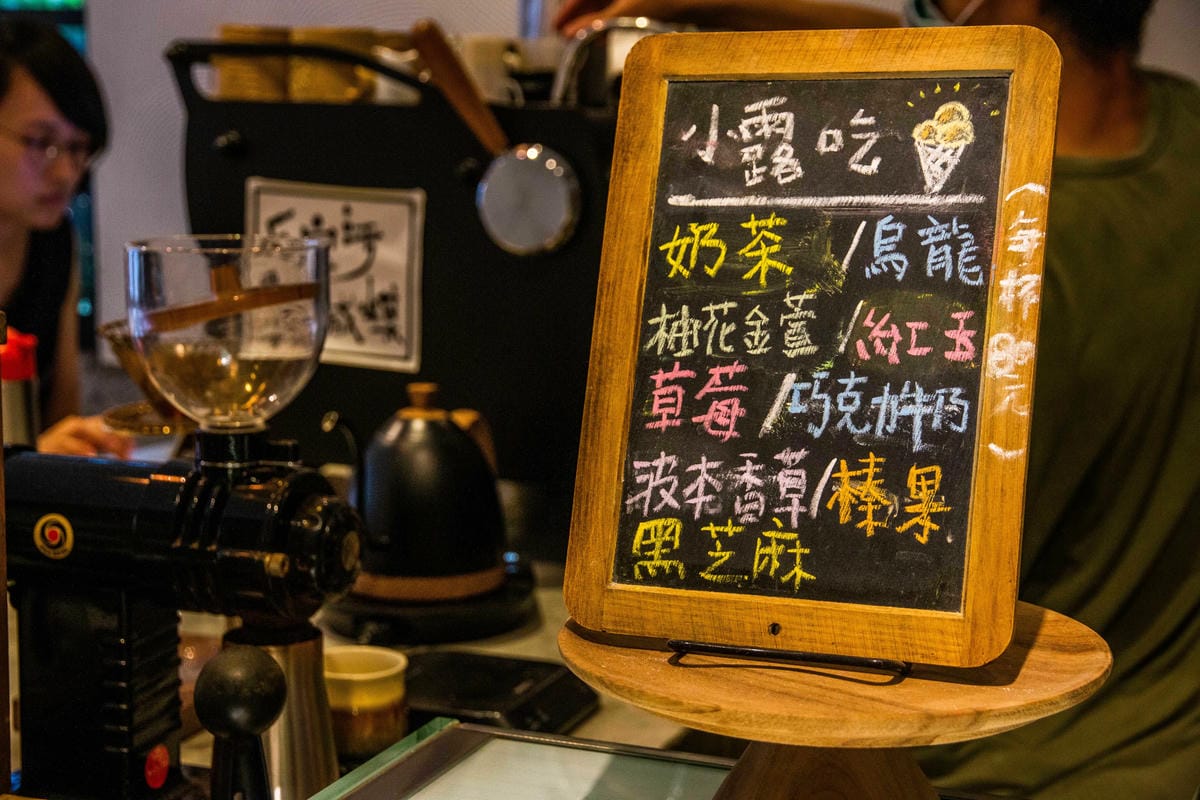 小露吃
奶茶/烏龍
柚花金萱/紅玉
草莓/巧克力牛奶
波本香草/榛果
黑芝麻
(每杯80元)